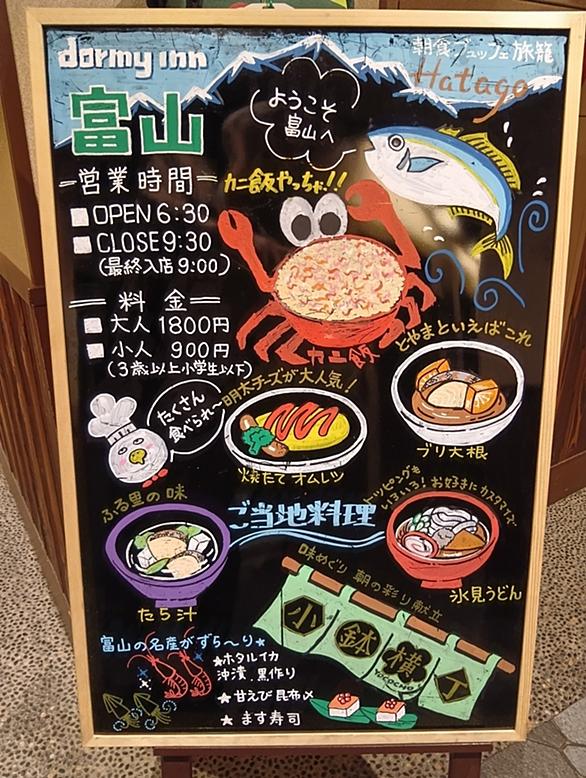 dormy inn
朝食ブュッフェ 旅籠
Hatago
富山
ようこそ
富山へ
営業時間
カニ飯やっちゃ!!
OPEN 6:30
CLOSE 9:30
(最終入店 9:00)
料金
大人 1800円
小人 900円
(3歳以上小学生以下)
カニ飯
とやまといえばこれ
ブリ大根
たくさん
食べられ〜
明太チーズが大人気!
焼たて オムレツ
ふる里の味
たら汁
ご当地料理
トッピングも
いろいろ!お好きにカスタマイズ〜
氷見うどん
味めぐり 朝の彩り献立
小鉢横丁
YOCOCHO
富山の名産がずら〜り★
★ホタルイカ
沖漬、黒作り
★甘えび昆布〆
★ます寿司